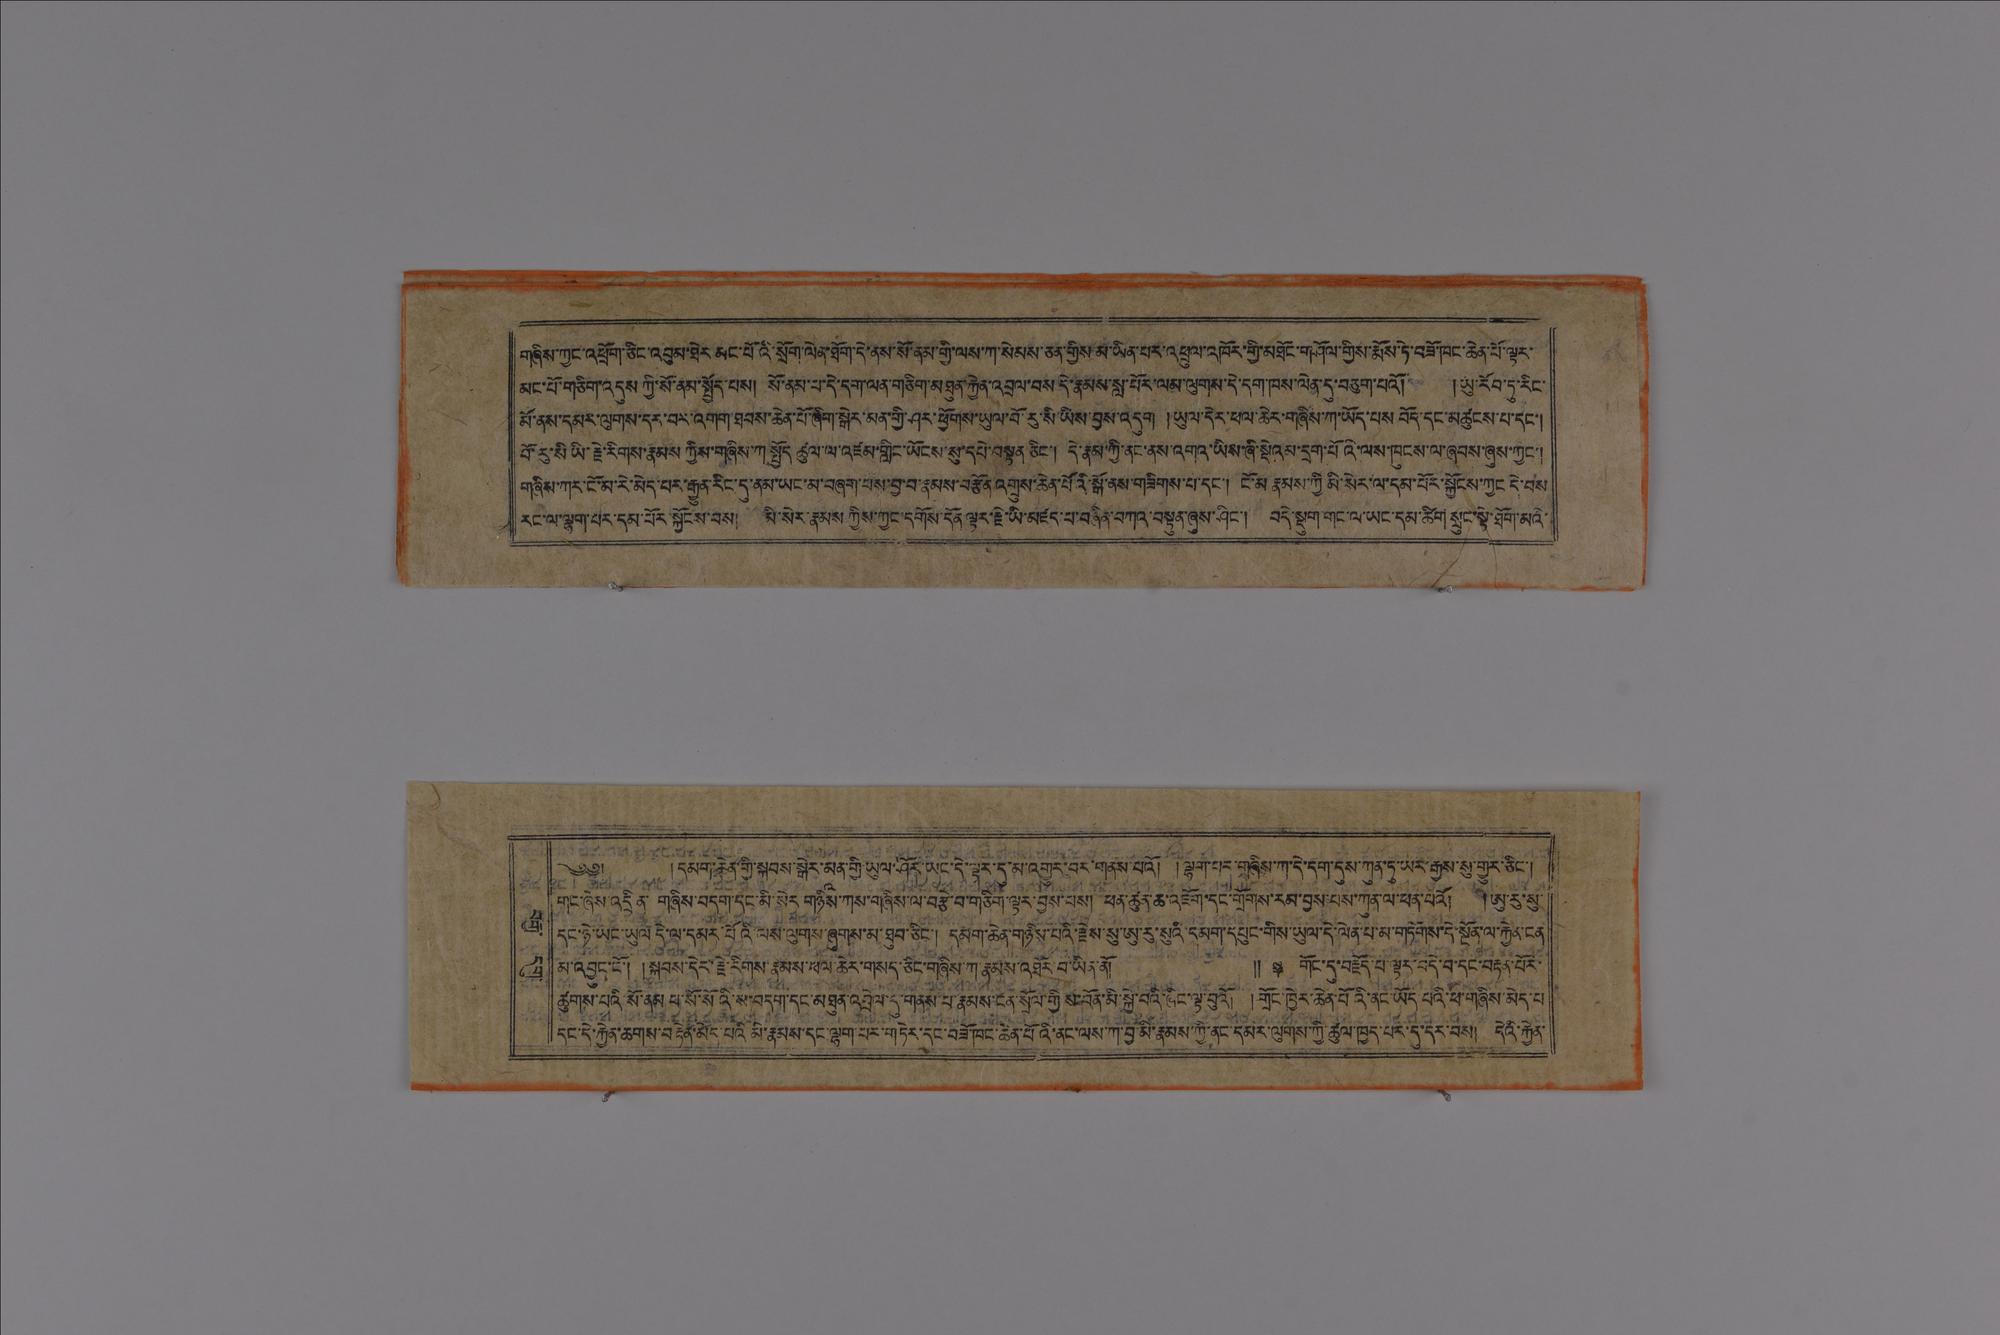 གཞིས་ཀྱང་འཕྲོག་ཅིང་འབུམ་ཐེར་མང་པོ་འི་སྲོག་ལེན་ཐོག་དེ་ནས་སོ་ནམ་གྱི་ལས་ཀ་སེམས་ཅན་གྱིས་མ་ཡིན་པར་འཕྲུལ་འཁོར་གྱི་མཐོང་གཤོལ་གྱིས་རྨོས་ཏེ་བཟོ་ཁང་ཆེན་པོ་ལྟར་
མང་པོ་གཅིག་འདུས་ཀྱི་སོ་ནམ་སྤྱོད་པས། སོ་ནམ་པ་དེ་དག་ལན་གཅིག་མཐུན་རྐྱེན་འབྲལ་བས་དེ་རྣམས་སླ་པོར་ལམ་ལུགས་དེ་དག་ཁས་ལེན་དུ་བཅུག་པའོ། །ཡུ་རོབ་ཏུ་རིང་
མོ་ནས་དམར་ལུགས་དར་བར་འགག་ཐབས་ཆེན་པོ་ཞིག་སྒེར་མན་གྱི་ཤར་ཕྱོགས་ཡུལ་པོ་རུ་སི་ཡིས་བྱས་འདུག །ཡུལ་དེར་ཕལ་ཆེར་གཞིས་ཀ་ཡོད་པས་བོད་དང་མཚུངས་པ་དང་།
པོ་རུ་སི་ཡི་རྗེ་རིགས་རྣམས་ཀྱིས་གཞིས་ཀ་སྤྱོད་ཚུལ་ལ་འཛམ་གླིང་ཡོངས་སུ་དཔེ་བསྟན་ཅིང་། དེ་རྣམ་ཀྱི་ནང་ནས་འགའ་ཡིས་ཞི་སྡེའམ་དྲག་པོ་འི་ལས་ཁུངས་ལ་ཞབས་ཞུས་ཀྱང་།
གཞིས་ཀར་ངོ་མ་རེ་མེད་པར་རྒྱུན་རིང་དུ་ནམ་ཡང་མ་བཞག་པས་བྱ་བ་རྣམས་བརྩོན་འགྲུས་ཆེན་པོ་འི་སྒོ་ནས་གཟིགས་པ་དང་། ངོ་མ་རྣམས་ཀྱི་མི་སེར་ལ་དམ་པོར་སྐྱོངས་ཀྱང་དེ་བས
རང་ལ་ལྷག་པར་དམ་པོར་སྐྱོངས་བས། མི་སེར་རྣམས་ཀྱིས་ཀྱང་དགོས་དོན་ལྟར་རྗེ་ཡི་མཛད་པ་བཞིན་བཀའ་བསྟུན་ཞུས་ཤིང་། བདེ་སྡུག་གང་ལ་ཡང་དམ་ཚིག་སྲུང་སྟེ་ཐོག་མའི་
༄༅། །དམག་ཆེན་གྱི་སྐབས་སྒེར་མན་གྱི་ཡུལ་ཤོར་ཡང་དེ་ལྟར་དུ་མ་འགྱུར་བར་གནས་པའོ། །ལྷག་པར་གཞིས་ཀ་དེ་དག་དུས་ཀུན་དུ་ཡར་རྒྱས་སུ་གྱུར་ཅིང་།
གང་ཞེས་འདྲི་ན་ གཞིས་བདག་དང་མི་སེར་གཉིས་ཀས་གཞིས་ལ་བརྩེ་བ་གཅིག་ལྟར་བྱས་པས། ཕན་ཚུན་ཆ་འཇོག་དང་གྲོགས་རམ་བྱས་པས་ཀུན་ལ་ཕན་པའོ། །ཨུ་རུ་སུ་
དང་ཉེ་ཡང་ཡུལ་དེ་ལ་དམར་པོ་འི་ལམ་ལུགས་ཞུགས་མ་ཐུབ་ཅིང་། དམག་ཆེན་གཉིས་པའི་རྗེས་སུ་ཨུ་རུ་སུའི་དམག་དཔུང་གིས་ཡུལ་དེ་ལེན་པ་མ་གཏོགས་དེ་སྔོན་ལ་རྐྱེན་ངན
མ་འབྱུང་ངོ་། །སྐབས་དེར་རྗེ་རིགས་རྣམས་ཕལ་ཆེར་གསད་ཅིང་གཞིས་ཀ་རྣམས་འཐོར་བ་ཡིན་ནོ། །། ༈ གོང་དུ་བརྗོད་པ་ལྟར་བདེ་བ་དང་བརྟན་པོར་
ཚུགས་པའི་སོ་ནམ་པ་སོ་སོ་འི་ས་བདག་དང་མཐུན་འབྲེལ་དུ་གནས་པ་རྣམས་ངན་སྲོལ་གྱི་ས་བོན་མི་སྐྱེ་བའི་ཞིང་ལྟ་བུའོ། །གྲོང་ཁྱེར་ཆེན་པོ་འི་ནང་ཡོད་པའི་ཕ་གཞིས་མེད་པ
དང་དེ་རྐྱེན་ཆགས་བརྟན་མེད་པའི་མི་རྣམས་དང་ལྷག་པར་གཏེར་དང་བཟོ་ཁང་ཆེན་པོ་འི་ནང་ལས་ཀ་བྱ་མི་རྣམས་ཀྱི་ནང་དམར་ལུགས་ཀྱི་ཚུལ་ཁྱད་པར་དུ་དར་བས།། དེའི་རྐྱེན་